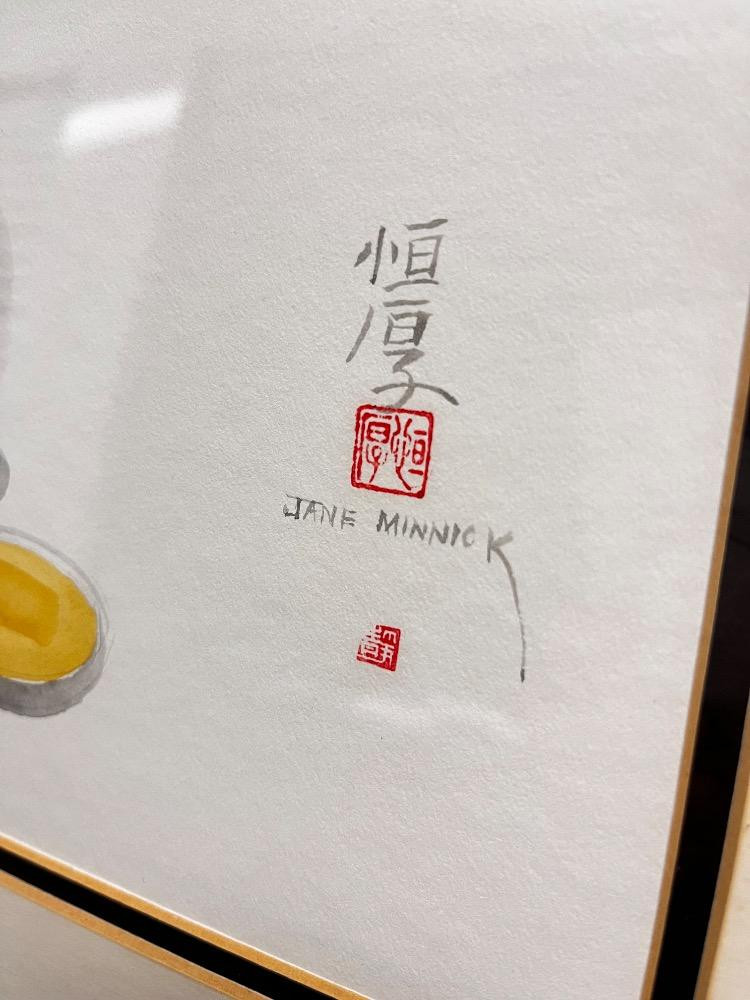 恒厚
恒厚
JANE MINNICK